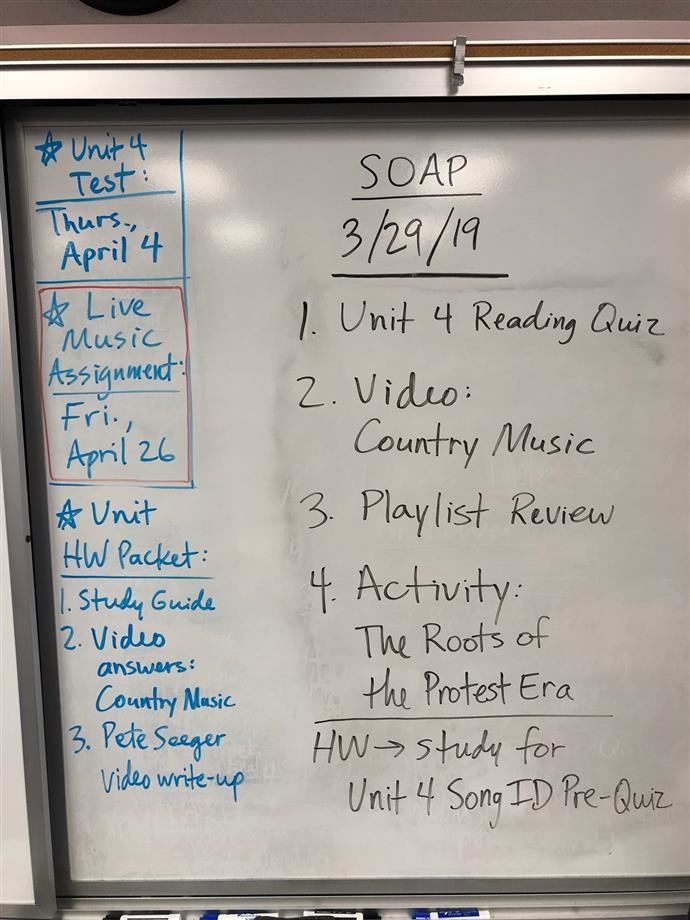 ☆ Unit 4
Test:
Thurs.,
April 4
☆ Live
Music
Assignment:
Fri.,
April 26
☆ Unit
HW Packet:
1. Study Guide
2. Video
answers:
Country Music
3. Pete Seeger
Video write-up
SOAP
3/29/19
1. Unit 4 Reading Quiz
2. Video:
Country Music
3. Playlist Review
4. Activity:
The Roots of
the Protest Era
HW → study for
Unit 4 Song ID Pre-Quiz